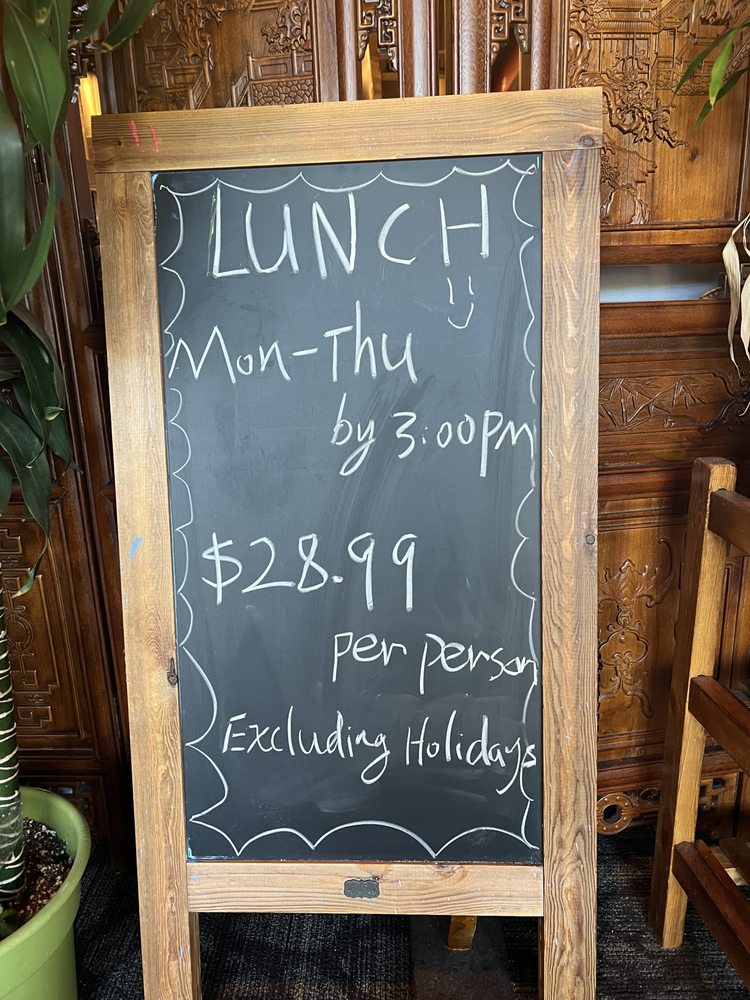 LUNCH
Mon-Thu
by 3:00PM
$28.99
per person
Excluding Holidays